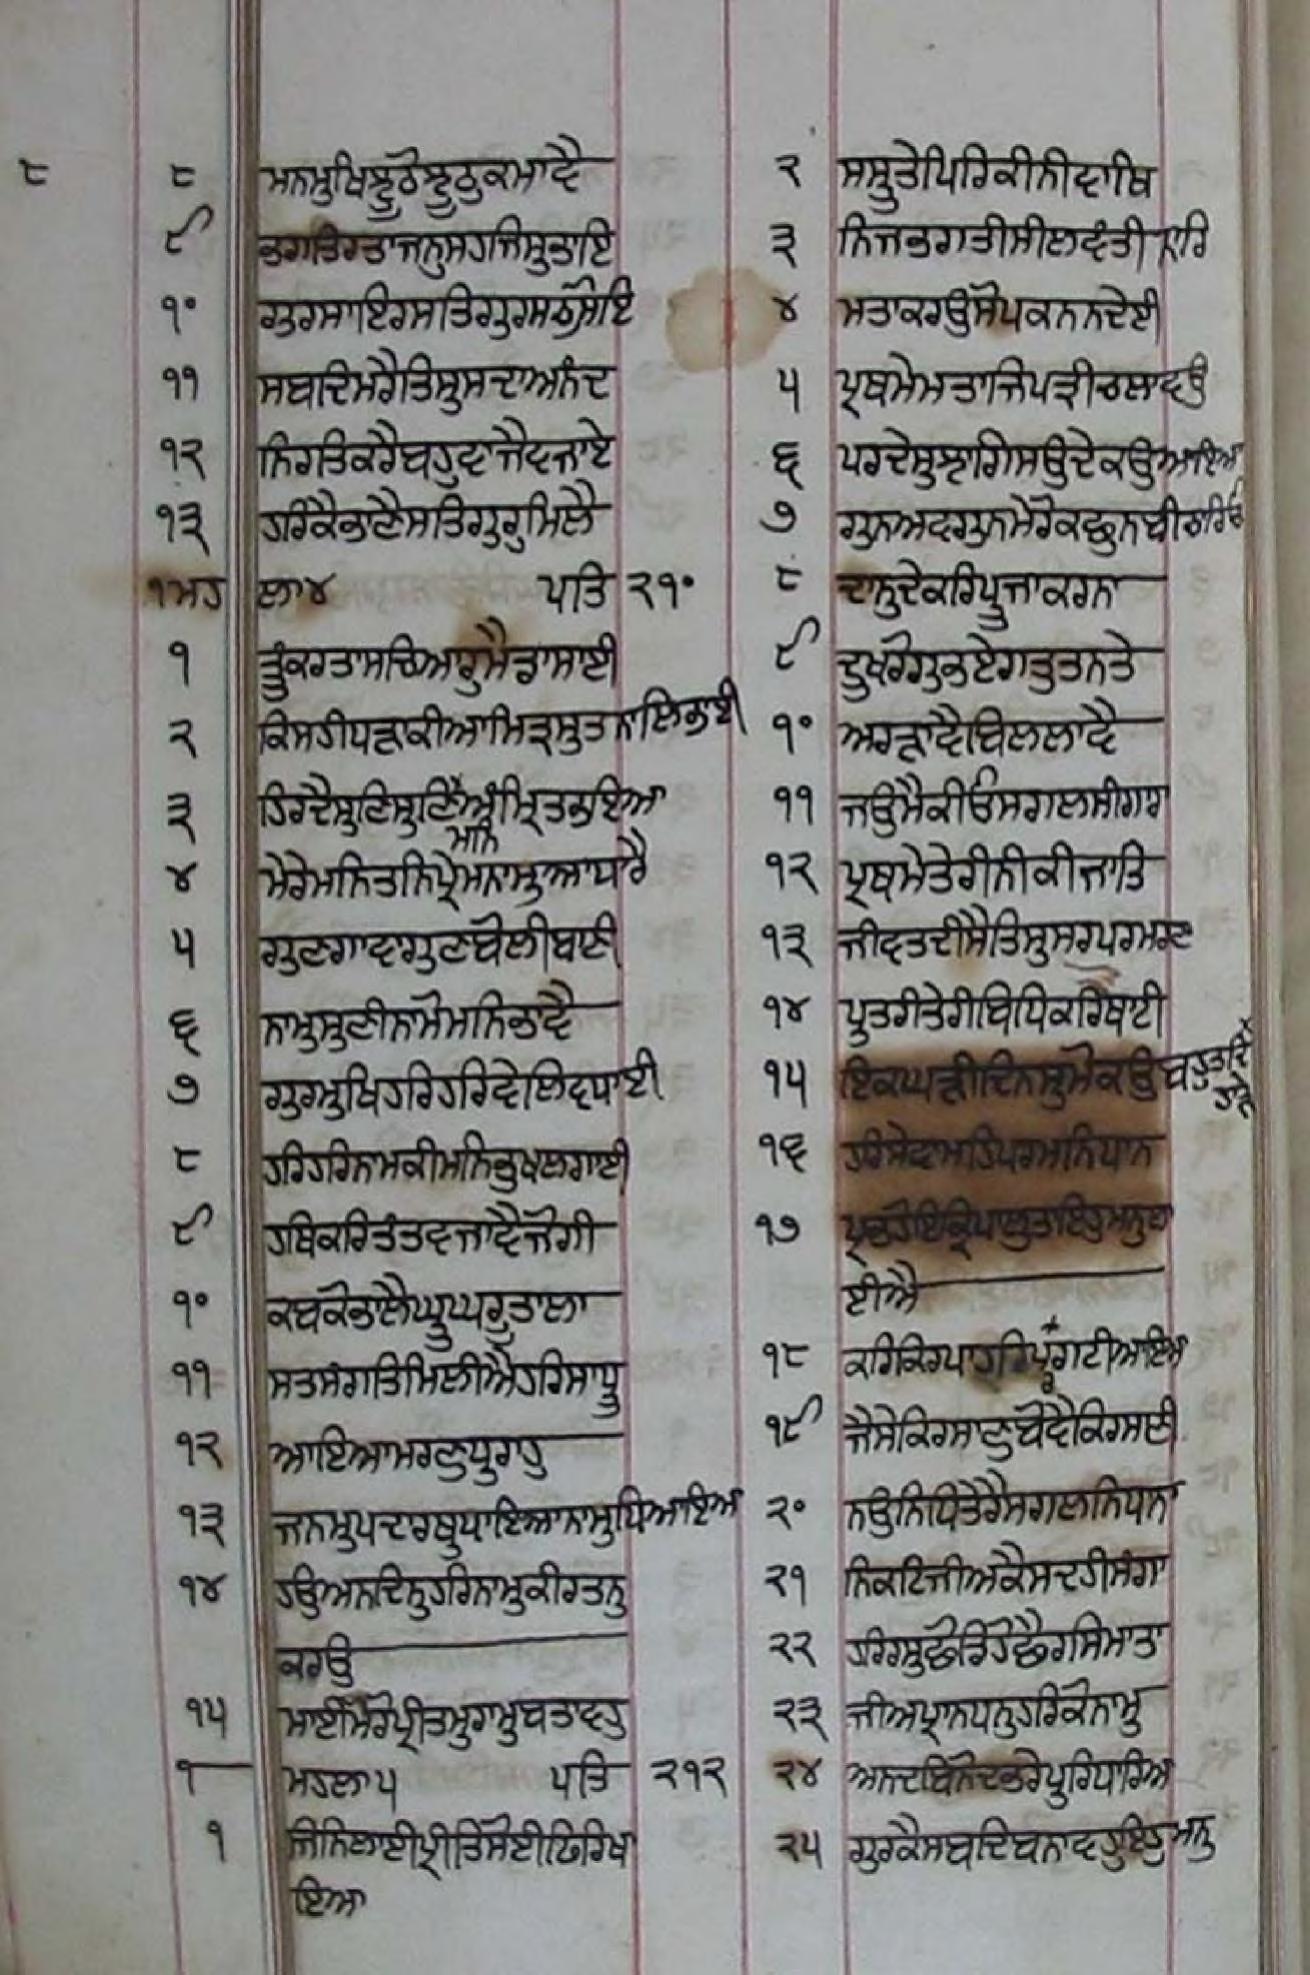 ੮ ੮ ਮਨਮੁਖਿਝੂਠੋਝੂਠੁਕਮਾਵੈ
੯ ਭਗਤਿਰਤਾਜਨੁਸਹਜਿਸੁਭਾਇ
੧੦ ਗੁਰਸਾਇਰਸਤਿਗੁਰਸਚੁਸੋਇ
੧੧ ਸਬਦਿਮਰੈਤਿਸੁਸਦਾਅਨੰਦ
੧੨ ਨਿਰਤਿਕਰੈਬਹੁਵਾਜੈਵਜਾਏ
੧੩ ਹਰਿਕੈਭਾਣੈਸਤਿਗੁਰੁਮਿਲੈ
੧ਮਹਲਾ੪ ਪਤਿ ੨੧੦
੧ ਤੂੰਕਰਤਾਸਚਿਆਰੁਮੈਡਾਸਾਈ
੨ ਕਿਸਹੀਧੜਾਕੀਆਮਿਤ੍ਰਸੁਤਨਾਲਿਭਾਈ
੩ ਹਿਰਦੈਸੁਣਿਸੁਣਿਮਨਿਅੰਮ੍ਰਿਤੁਭਾਇਆ
੪ ਮੇਰੇਮਨਿਤਨਿਪ੍ਰੇਮਨਾਮੁਆਧਾਰੈ
੫ ਗੁਣਗਾਵਾਗੁਣਬੋਲੀਬਾਣੀ
੬ ਨਾਮੁਸੁਣੀਨਾਮੋਮਨਿਭਾਵੈ
੭ ਗੁਰਮੁਖਿਹਰਿਹਰਿਵੇਲਿਵਧਾਈ
੮ ਹਰਿਹਰਿਨਾਮਕੀਮਨਿਭੂਖਲਗਾਈ
੯ ਹਥਿਕਰਿਤੰਤਵਜਾਵੈਜੋਗੀ
੧੦ ਕਬਕੋਭਾਲੈਘੁਘਰੁਤਾਲਾ
੧੧ ਸਤਸੰਗਤਿਮਿਲੀਐਹਰਿਸਾਧੂ
੧੨ ਆਇਆਮਰਣੁਧੁਰਾਹੁ
੧੩ ਜਨਮੁਪਦਾਰਥੁਪਾਇਆਨਾਮੁਧਿਆਇਆ
੧੪ ਹਉਅਨਦਿਨੁਹਰਿਨਾਮੁਕੀਰਤਨੁ
ਕਰਉ
੧੫ ਮਾਈਮੋਰੋਪ੍ਰੀਤਮੁਰਾਮੁਬਤਾਵਹੁ
੧ ਮਹਲਾ੫ ਪਤਿ ੨੧੨
੧ ਜਿਨਿਲਾਈਪ੍ਰੀਤਿਸੋਈਫਿਰਿਖਾ
ਇਆ
੨ ਸਸੂਤੇਪਿਰਿਕੀਨੀਵਾਖਿ
੩ ਨਿਜਭਗਤੀਸੀਲਵੰਤੀਨਾਰਿ
੪ ਮਤਾਕਰਉਸੋਪਕਨਨਦੇਈ
੫ ਪ੍ਰਥਮੇਮਤਾਜਿਪਤ੍ਰੀਚਲਾਵਉ
੬ ਪਰਦੇਸੁਝਾਗਿਸਉਦੇਕਉਆਇਆ
੭ ਗੁਨਅਵਗੁਨਮੇਰੋਕਛੁਨਬੀਚਾਰਿਓ
੮ ਦਾਨੁਦੇਕਰਿਪੂਜਾਕਰਨਾ
੯ ਦੂਖਰੋਗੁਭਏਗਤੁਤਨਤੇ
੧੦ ਅਰੜਾਵੈਬਿਲਲਾਵੈ
੧੧ ਜਉਮੈਕੀਓਸਗਲਸੀਗਾਰਾ
੧੨ ਪ੍ਰਥਮੇਤੇਰੀਨੀਕੀਜਾਤਿ
੧੩ ਜੀਵਤਦੀਸੈਤਿਸੁਸਰਪਰਮਰਣਾ
੧੪ ਪੁਤਰੀਤੇਰੀਬਿਧਿਕਰਿਥਾਟੀ
੧੫ ਇਕਘੜੀਦਿਨਸੁਮੋਕਉਬਹੁਤੁਦਿ
ਹਾਰੇ
੧੬ ਹਰਿਸੇਵਾਮਹਿਪਰਮਨਿਧਾਨ
੧੭ ਪ੍ਰਭੁਹੋਇਕ੍ਰਿਪਾਲੁਤਾਇਹੁਮਨੁਲਾ
ਈਐ
੧੮ ਕਰਿਕਿਰਪਾਹਰਿਪ੍ਰਗਟੀਆਇਆ
੧੯ ਜੈਸੇਕਿਰਸਾਣੁਬੋਵੈਕਿਰਸਾਣੀ
੨੦ ਨਉਨਿਧਿਤੇਰੈਸਗਲਨਿਧਾਨਾ
੨੧ ਨਿਕਟਿਜੀਅਕੈਸਦਹੀਸੰਗਾ
੨੨ ਹਰਿਰਸੁਛੋਡਿਹੋਛੈਰਸਿਮਾਤਾ
੨੩ ਜੀਅਪ੍ਰਾਨਧਨੁਹਰਿਕੋਨਾਮੁ
੨੪ ਅਨਦਬਿਨੋਦਭਰੇਪੁਰਿਧਾਰਿਆ
੨੫ ਗੁਰਕੈਸਬਦਿਬਨਾਵਹੁਇਹੁਮਨੁ